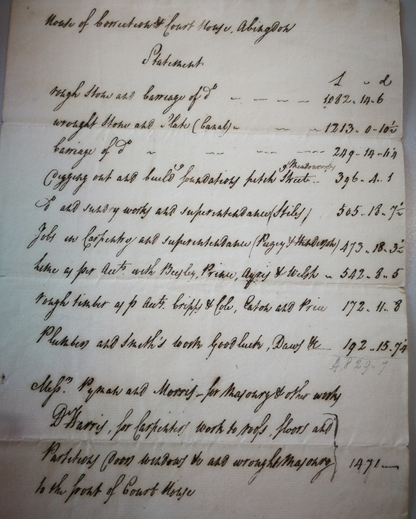 House of Correction & Court House, Abingdon
Statement
£ " d
rough Stone and Carriage of Do 1082-14-6
wrought Stone and Slate (Canal) 1213-0-10½
Carriage of Do 249-14-
Digging out and buildg foundations pitch Streets 396-4-1
Do and sundry works and superintendance (Stiles) 505-18-7½
Jobs in Carpentry and superintendance 473-18-3½
lime as per Accts with Besley, Prince, & Welch 542-8-5
rough timber as pr Accts Cripps & Co, Eaton and Price 172-11-8
Plumbers and Smith's work Goodluck, Daws &c 192-15-
4829-7
Messrs Pyman and Morris for Masonry & other works
Do Harris, for Carpenters work to roofs, floors and
Partitions, Doors windows &c and wrought Masonry 1471
to the front of Court House